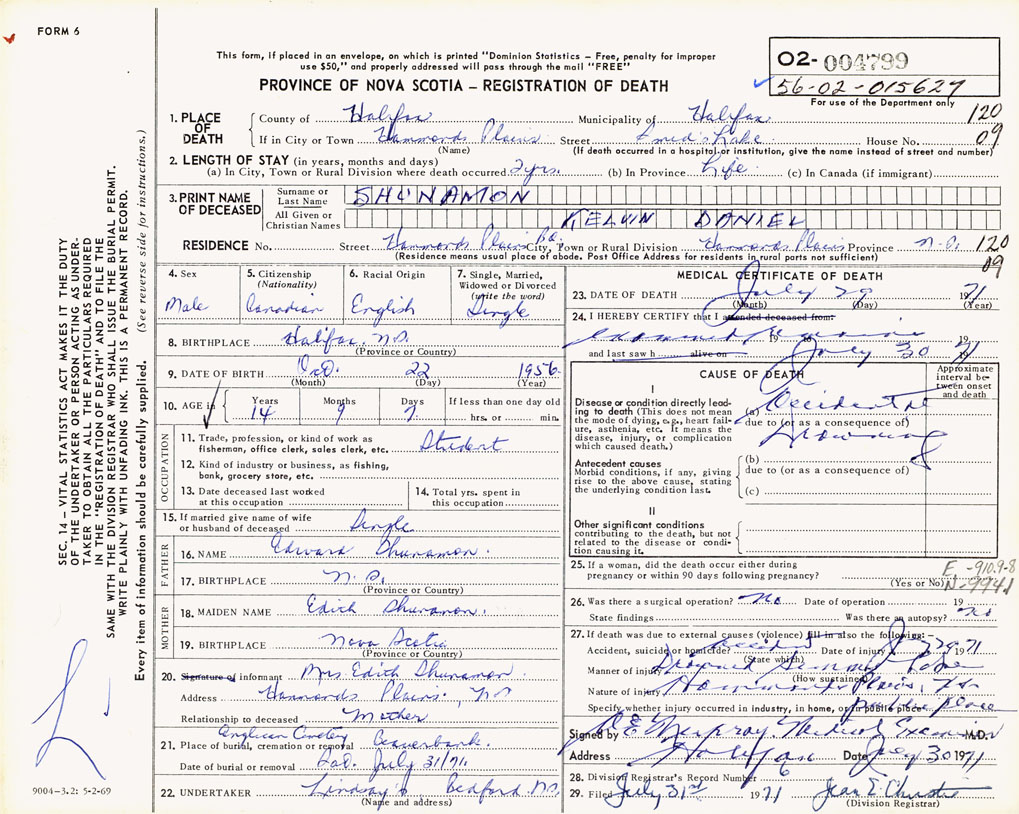 FORM 6
This form, if placed in an envelope, on which is printed "Dominion Statistics – Free, penalty for improper
use $50," and properly addressed will pass through the mail "FREE"
PROVINCE OF NOVA SCOTIA – REGISTRATION OF DEATH
02-004799
56-02-015627
For use of the Department only
1. PLACE OF DEATH
County of Halifax Municipality of Halifax 120
If in City or Town Hammonds Plains Street Lake House No. 09
(Name) (If death occurred in a hospital or institution, give the name instead of street and number)
2. LENGTH OF STAY (in years, months and days)
(a) In City, Town or Rural Division where death occurred 2 yrs. (b) In Province Life (c) In Canada (if immigrant)
3. PRINT NAME OF DECEASED
Surname or Last Name SHUNAMON
All Given or Christian Names KELVIN DANIEL
RESIDENCE No. Street Hammonds Plains Rd. City, Town or Rural Division Hammonds Plains Province N.S. 120
(Residence means usual place of abode. Post Office Address for residents in rural parts not sufficient) 09
4. Sex Male
5. Citizenship (Nationality) Canadian
6. Racial Origin English
7. Single, Married, Widowed or Divorced (write the word) Single
8. BIRTHPLACE Halifax N.S.
(Province or Country)
9. DATE OF BIRTH Oct. 22 1956
(Month) (Day) (Year)
10. AGE in Years 14 Months 9 Days 7 If less than one day old hrs. or min.
OCCUPATION
11. Trade, profession, or kind of work as
fisherman, office clerk, sales clerk, etc. Student
12. Kind of industry or business, as fishing,
bank, grocery store, etc.
13. Date deceased last worked
at this occupation
14. Total yrs. spent in
this occupation
15. If married give name of wife
or husband of deceased Single
FATHER
16. NAME Edward Shunamon.
17. BIRTHPLACE N.S.
(Province or Country)
MOTHER
18. MAIDEN NAME Edith Shunamon.
19. BIRTHPLACE Nova Scotia
(Province or Country)
20. Signature of informant Mrs Edith Shunamon.
Address Hammonds Plains, NS
Relationship to deceased Mother
Anglican Cemetery
21. Place of burial, cremation or removal Beaverbank.
Date of burial or removal Sat. July 31/71.
22. UNDERTAKER Lindsay's Bedford N.S.
(Name and address)
MEDICAL CERTIFICATE OF DEATH
23. DATE OF DEATH July 29 1971
(Month) (Day) (Year)
24. I HEREBY CERTIFY that I attended deceased from
examined remains 19 to
and last saw h alive on July 30 1971
CAUSE OF DEATH
Approximate interval between onset and death
I
Disease or condition directly leading
to death (This does not mean
the mode of dying, e.g., heart failure,
asthenia, etc. It means the
disease, injury, or complication
which caused death.)
(a) Accidental
due to (or as a consequence of)
Drowning
Antecedent causes
Morbid conditions, if any, giving
rise to the above cause, stating
the underlying condition last.
(b)
due to (or as a consequence of)
(c)
II
Other significant conditions
contributing to the death, but not
related to the disease or condition
causing it.
25. If a woman, did the death occur either during
pregnancy or within 90 days following pregnancy? (Yes or No)
E-910.9-8
N-9941
26. Was there a surgical operation? No Date of operation 19
State findings Was there an autopsy? No
27. If death was due to external causes (violence) fill in also the following:–
Accident, suicide or homicide? Accident Date of injury J 29 1971
(State which)
Manner of injury Drowned Lake
(How sustained)
Nature of injury Hammonds Plains, Hfx
Specify whether injury occurred in industry, in home, or in public place public place
Signed by Medical Examiner M.D.
Address Halifax Date July 30 1971
28. Division Registrar's Record Number 6
29. Filed July 31st 1971 Jean E. Christie
(Division Registrar)
SEC. 14 – VITAL STATISTICS ACT MAKES IT THE DUTY
OF THE UNDERTAKER OR PERSON ACTING AS UNDERTAKER
TO OBTAIN ALL THE PARTICULARS REQUIRED
IN THE "REGISTRATION OF DEATH" AND TO FILE THE
SAME WITH THE DIVISION REGISTRAR WHO SHALL ISSUE THE BURIAL PERMIT.
WRITE PLAINLY WITH UNFADING INK. THIS IS A PERMANENT RECORD.
Every item of information should be carefully supplied. (See reverse side for instructions.)
9004-3.2: 5-2-69